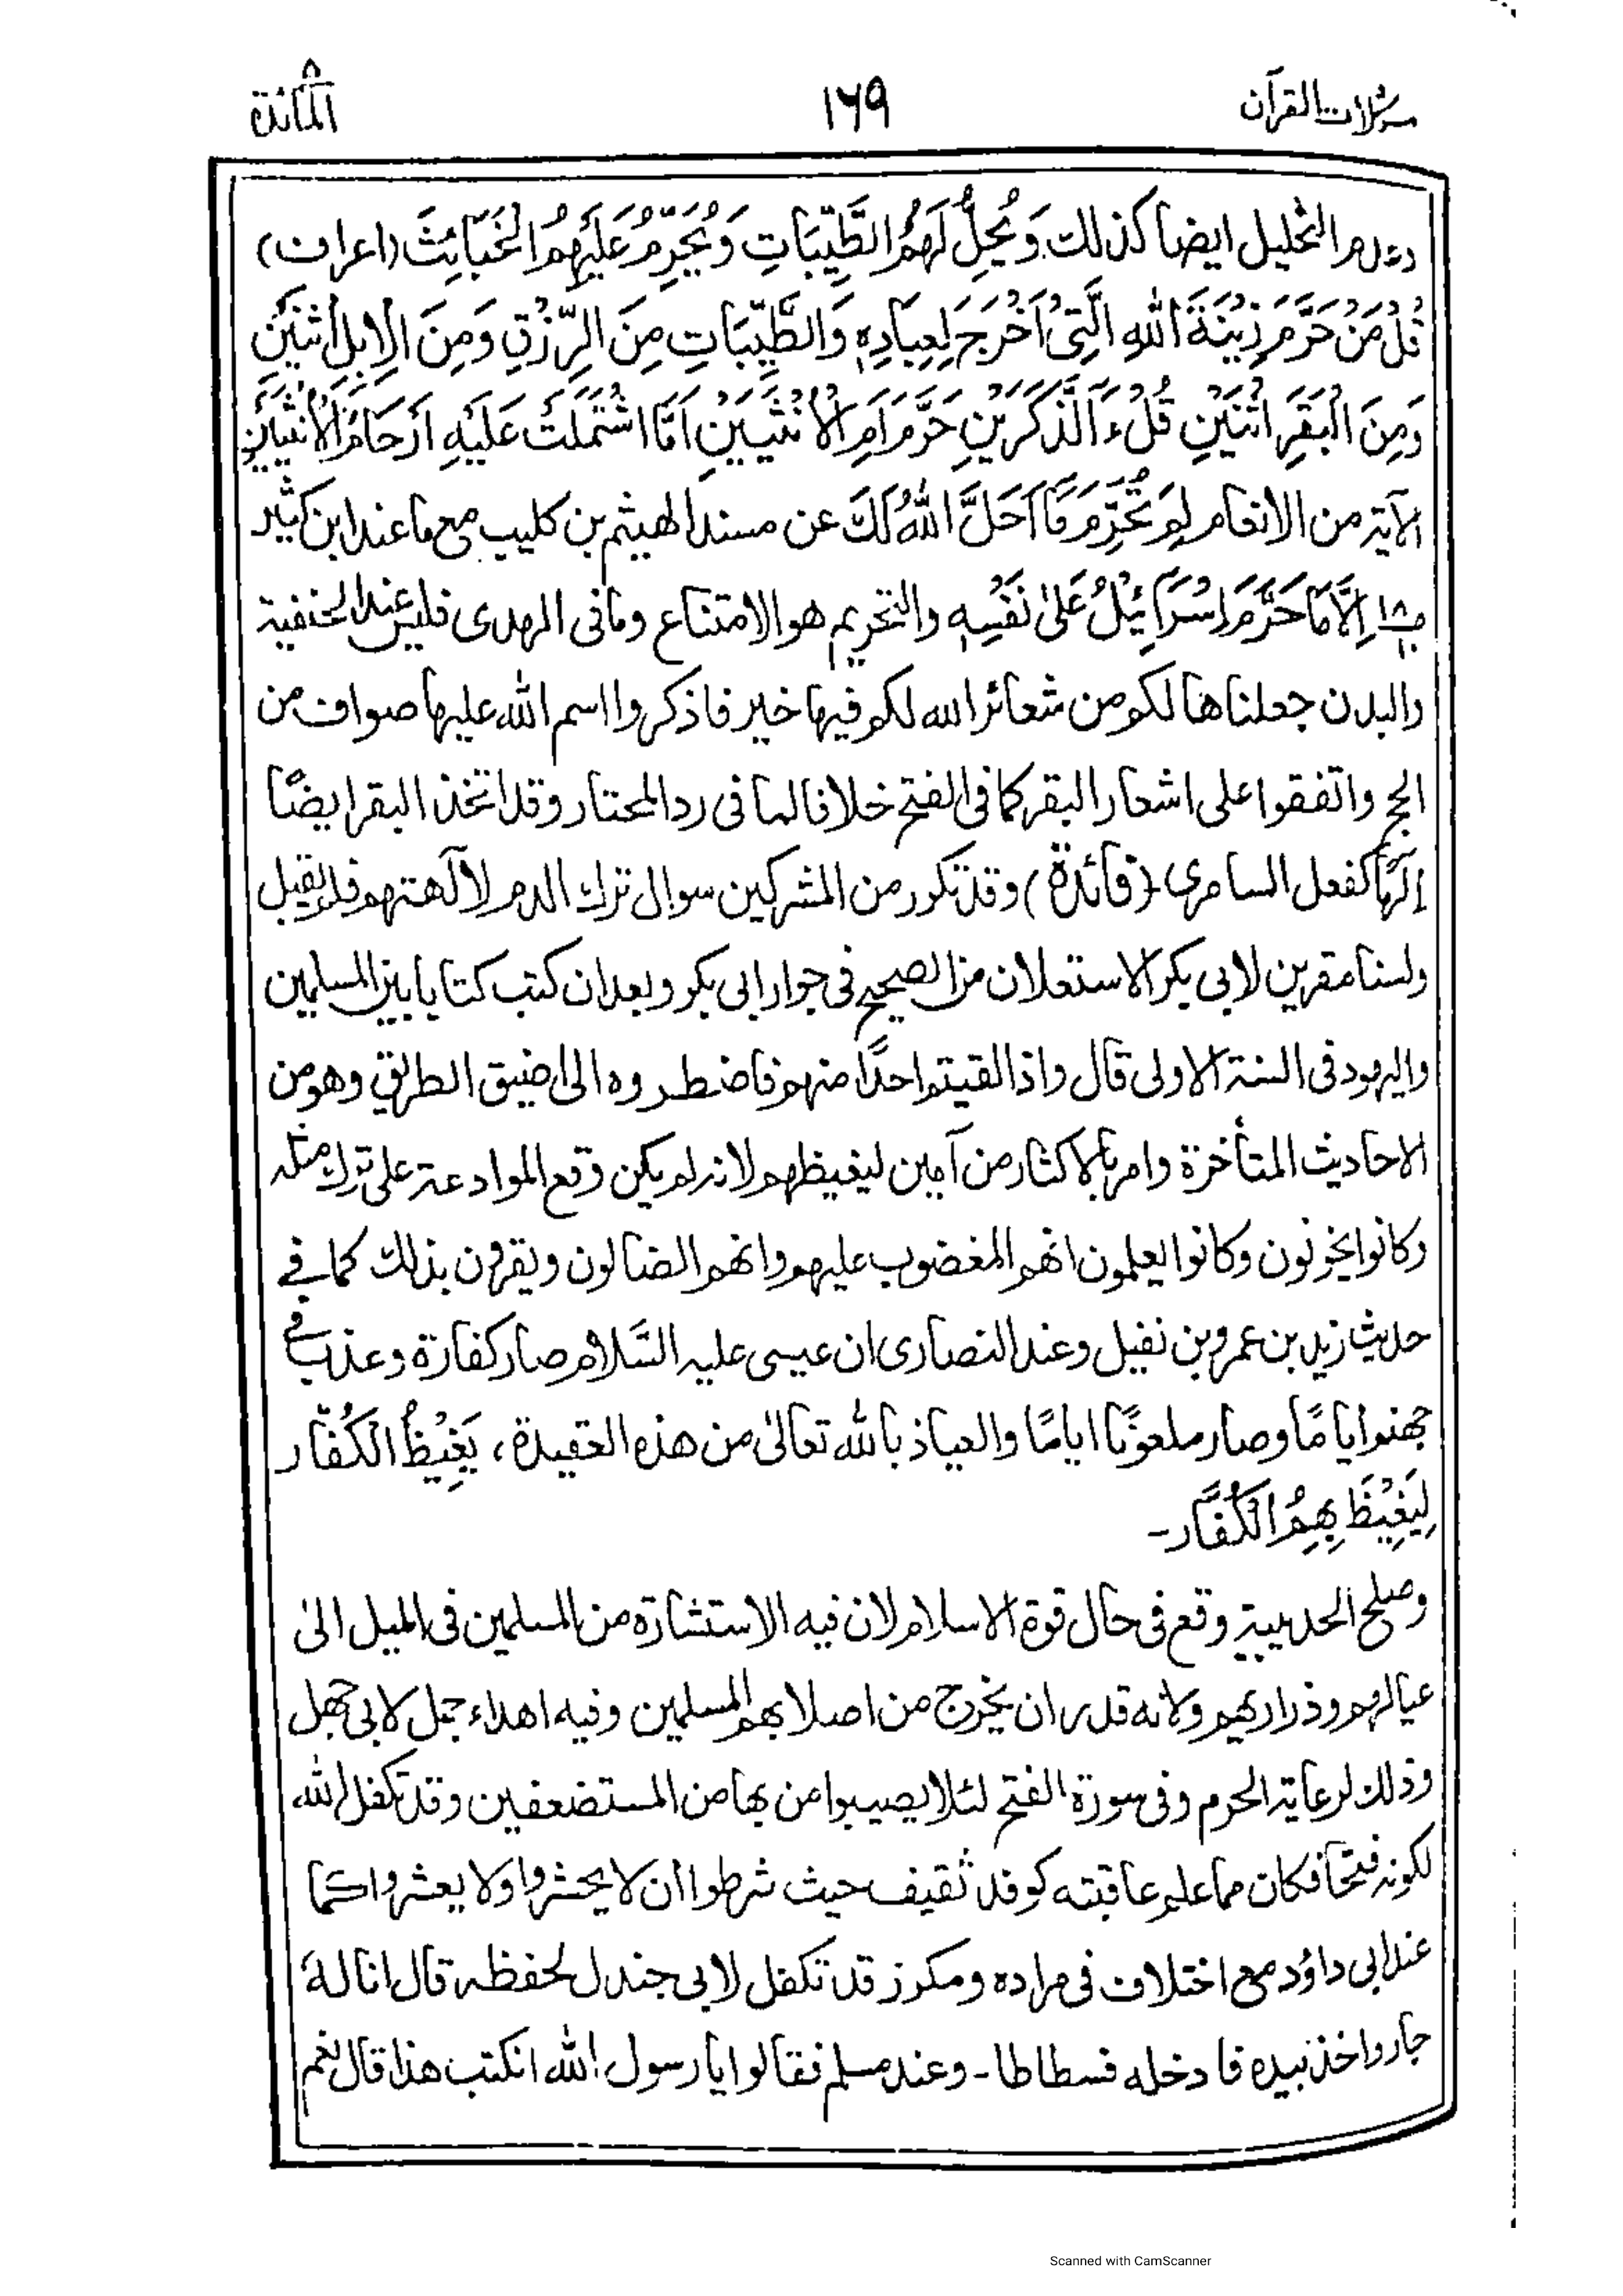 مشكلات القرآن
١٦٩
المائدة
وعدم التحليل ايضا كذلك وَيُحِلُّ لَهُمُ الطَّيِّبَاتِ وَيُحَرِّمُ عَلَيْهِمُ الْخَبَائِثَ (اعراف)
قُلْ مَنْ حَرَّمَ زِيْنَةَ اللهِ الَّتِىْ اَخْرَجَ لِعِبَادِهٖ وَالطَّيِّبَاتِ مِنَ الرِّزْقِ وَمِنَ الْاِبِلِ اثْنَيْنِ
وَمِنَ الْبَقَرِ اثْنَيْنِ قُلْ ءَآلذَّكَرَيْنِ حَرَّمَ اَمِ الْاُنْثَيَيْنِ اَمَّا اشْتَمَلَتْ عَلَيْهِ اَرْحَامُ الْاُنْثَيَيْنِ
الآية من الانعام لِمَ تُحَرِّمُ مَآ اَحَلَّ اللهُ لَكَ عن مسند الهيثم بن كليب مع ما عند ابن كثير
اِلَّا مَا حَرَّمَ اِسْرَآئِيْلُ عَلىٰ نَفْسِهٖ والتحريم هو الامتناع وما فى الهدى فليس عند الحنفية
والبدن جعلناها لكم من شعائر الله لكم فيها خير فاذكروا اسم الله عليها صواف من
الحج واتفقوا على اشعار البقر كما فى الفتح خلافا لما فى رد المحتار وقد اتخذ البقر ايضًا
اِلٰهًا كفعل السامرى (فائدة) وقد تكرر من المشركين سوال ترك الذم لآلهتهم فلم يقبل
ولسنا مقرين لابى بكر الاستعلان من الصحيح فى جوار ابى بكر وبعد ان كتب كتابا بين المسلمين
واليهود فى السنة الاولى قال واذا لقيتم احدًا منهم فاضطروه الى اضيق الطريق وهو من
الاحاديث المتأخرة وامر بالاكثار من آمين ليغيظهم لانه لم يكن وقع الموادعة على ترك مثله
وكانوا يخونون وكانوا يعلمون انهم المغضوب عليهم وانهم الضالون ويقرون بذلك كما فى
حديث زيد بن عمرو بن نفيل وعند النصارى ان عيسى عليه السَّلام صار كفارة وعذب فى
جهنم ايامًا وصار ملعونًا اياما والعياذ بالله تعالىٰ من هذه العقيدة، يَغِيْظُ الْكُفَّار
لِيَغِيْظَ بِهِمُ الْكُفَّار-
وصلح الحديبية وقع فى حال قوة الاسلام لان فيه الاستشارة من المسلمين فى الميل الىٰ
عيالهم وذراريهم ولانه قدر ان يخرج من اصلابهم المسلمين وفيه اهداء جمل لابى جهل
وذلك لرعاية الحرم وفى سورة الفتح لئلا يصيبوا من بها من المستضعفين وقد تكفل الله
لكونه فتحا فكان مما علم عاقبته كوفد ثقيف حيث شرطوا ان لا يحشروا ولا يعشروا كما
عند ابى داؤد مع اختلاف فى مراده ومكرز قد تكفل لابى جندل لحفظه قال انا لهٗ
جار واخذ بيده فادخله فسطاطا- وعند مسلم فقالوا يا رسول الله انكتب هذا قال نعم
Scanned with CamScanner